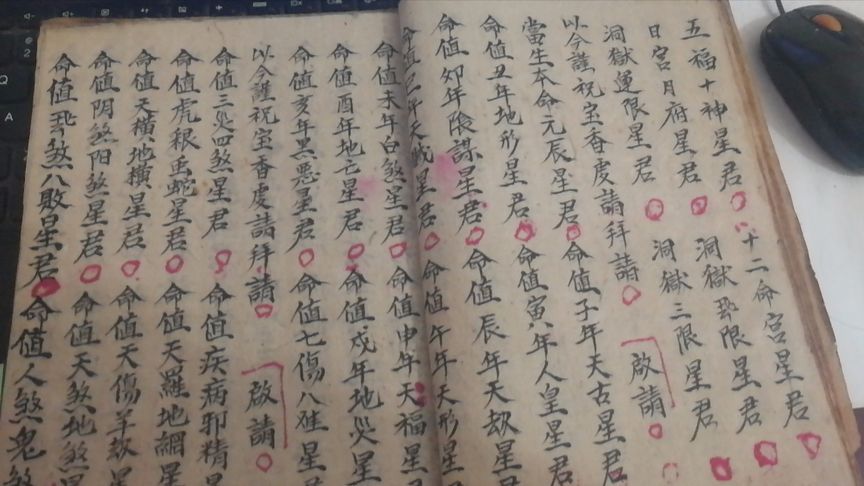 五福十神星君 十二命宮星君
日宮月府星君 洞獄飛限星君
洞獄運限星君 洞獄三限星君
以今謹祝宝香虔請拜請 啟請
當生本命元辰星君 命值子年天古星君
命值丑年地形星君 命值寅年人皇星君
命值卯年陰謀星君 命值辰年天刼星君
命值巳年天星君 命值午年天形星君
命值未年白煞星君 命值申年天福星君
命值酉年地亡星君 命值戌年地災星君
命值亥年黑惡星君 命值七傷八难星
以今謹祝宝香虔請拜請 啟請
命值三災四煞星君 命值疾病邪精星
命值虎狼蛇星君 命值天羅地網星
命值天橫地橫星君 命值天傷羊刼星
命值阴煞阳煞星君 命值天煞地煞星
命值飛煞八敗星君 命值人煞鬼煞